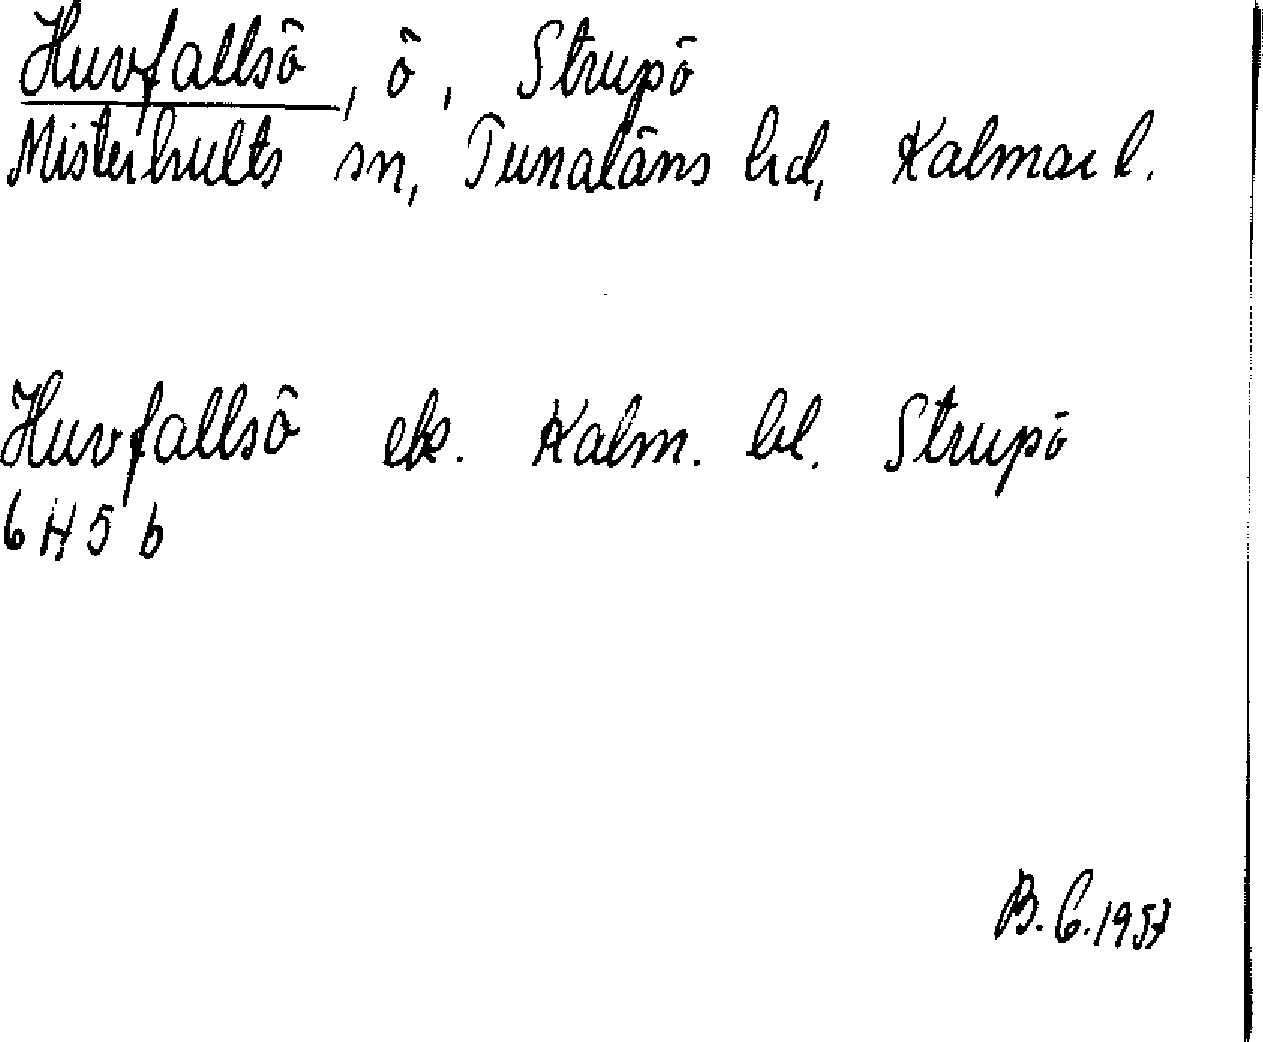 Huvfallsö, ö, Strupö
Misterhults sn, Tunaläns hd, Kalmar l.
Huvfallsö ek. Kalm. bl. Strupö
6 H 5 b
B. C. 1957